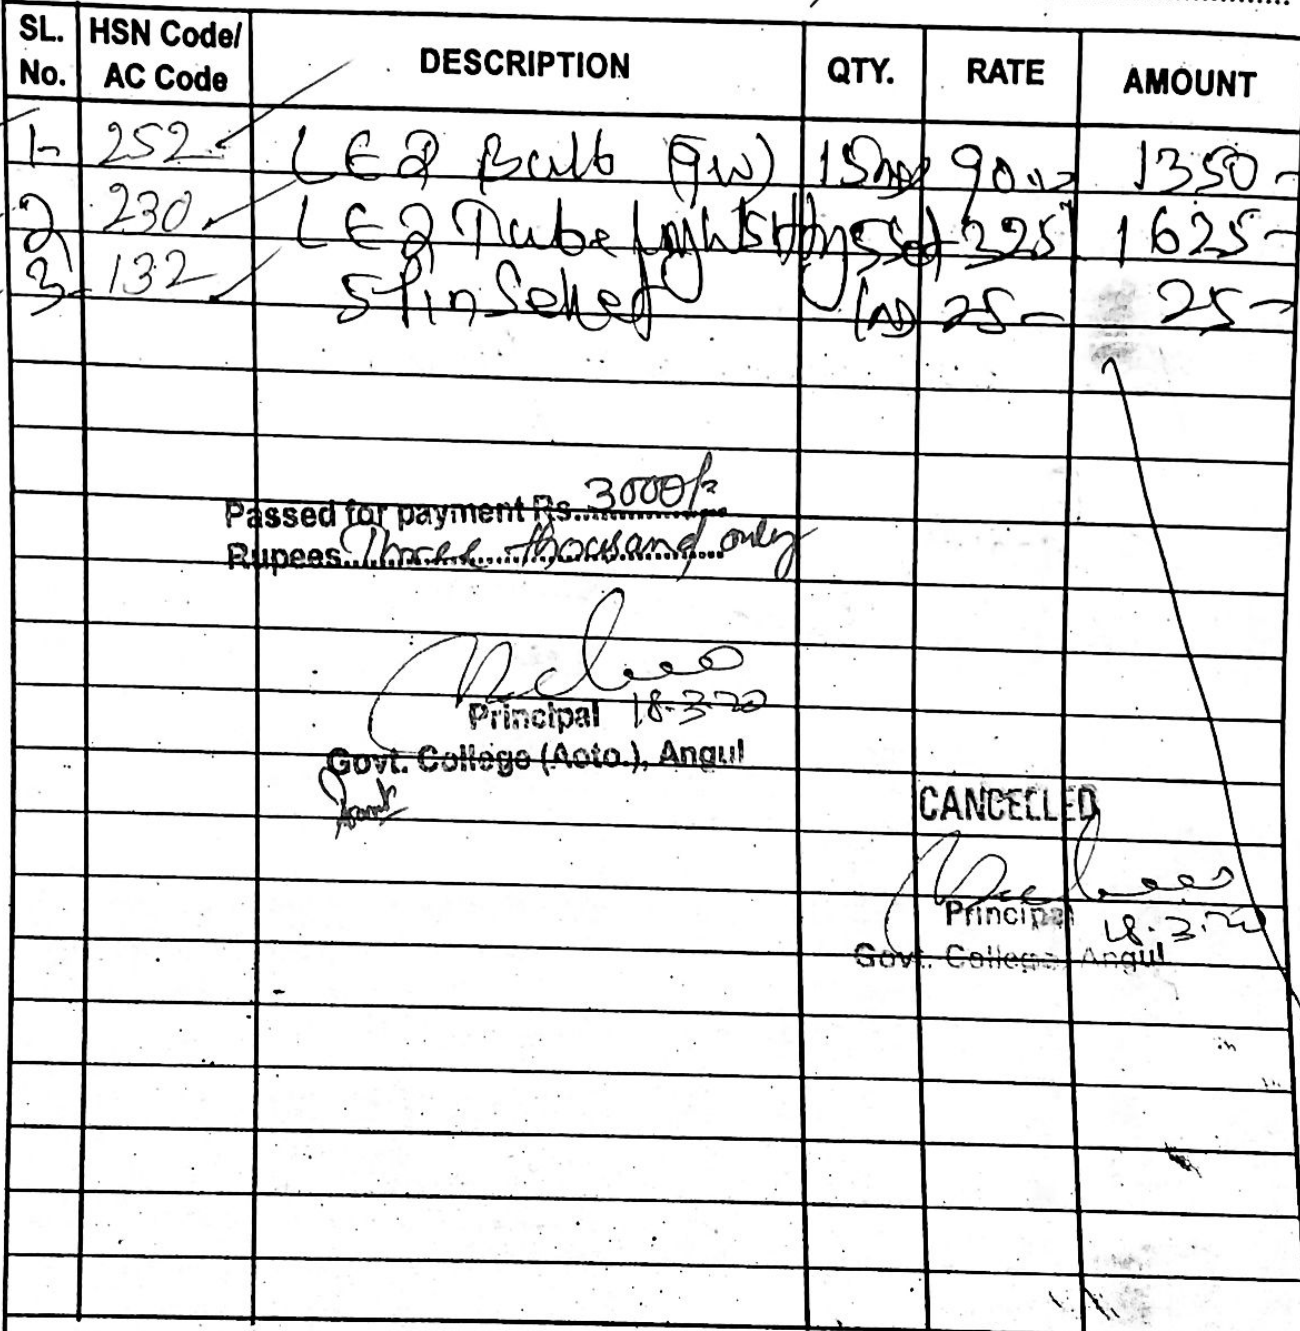 SL. No. HSN Code/ AC Code DESCRIPTION QTY. RATE AMOUNT
1- 252 LED Bulb (9W) 15 90 1350-
2 230 LED Tube lights 5 325 1625-
3- 132 5 Pin 25- 25-
Passed for payment Rs. 3000/-
Rupees Three thousand only
Principal 18-3-20
Govt. College (Auto.), Angul
CANCELLED
Principal 18.3.20
Govt. College, Angul